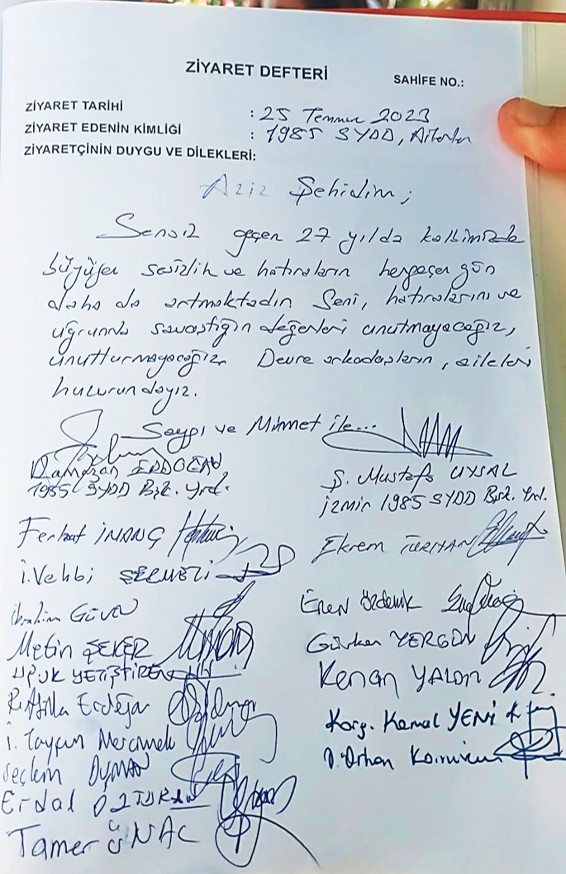 ZİYARET DEFTERİ
SAHİFE NO.:
ZİYARET TARİHİ : 25 Temmuz 2023
ZİYARET EDENİN KİMLİĞİ : 1985 SYDD, Aileler
ZİYARETÇİNİN DUYGU VE DİLEKLERİ:
Aziz Şehidim;
Sensiz geçen 27 yılda kalbimizde
büyüyen sesizlik ve hatıraların hergeçen gün
daha da artmaktadır. Seni, hatıralarını ve
uğrunda savaştığın değerleri unutmayacağız,
unutturmayacağız. Devre arkadaşların, aileleri
huzurundayız.
Saygı ve Minnet ile...
Ramazan ERDOĞAN
1985 SYDD Bşk. Yrd.
Ş. Mustafa UYSAL
İzmir 1985 SYDD Bşk. Yrd.
Ferhat İNANÇ
Ekrem TURHAN
İ. Vehbi
İbrahim GÜVEN
Eren Özdemir
Metin ŞEKER
Gürkan YERGÜN
UFUK YETİŞTİREN
Kenan YALÇIN
R. Atilla Erdoğan
Korg. Kemal YENİ
İ. Tayfun
D. Orhan
Seçkin DUMAN
Erdal ÖZTÜRK
Tamer ÜNAÇ